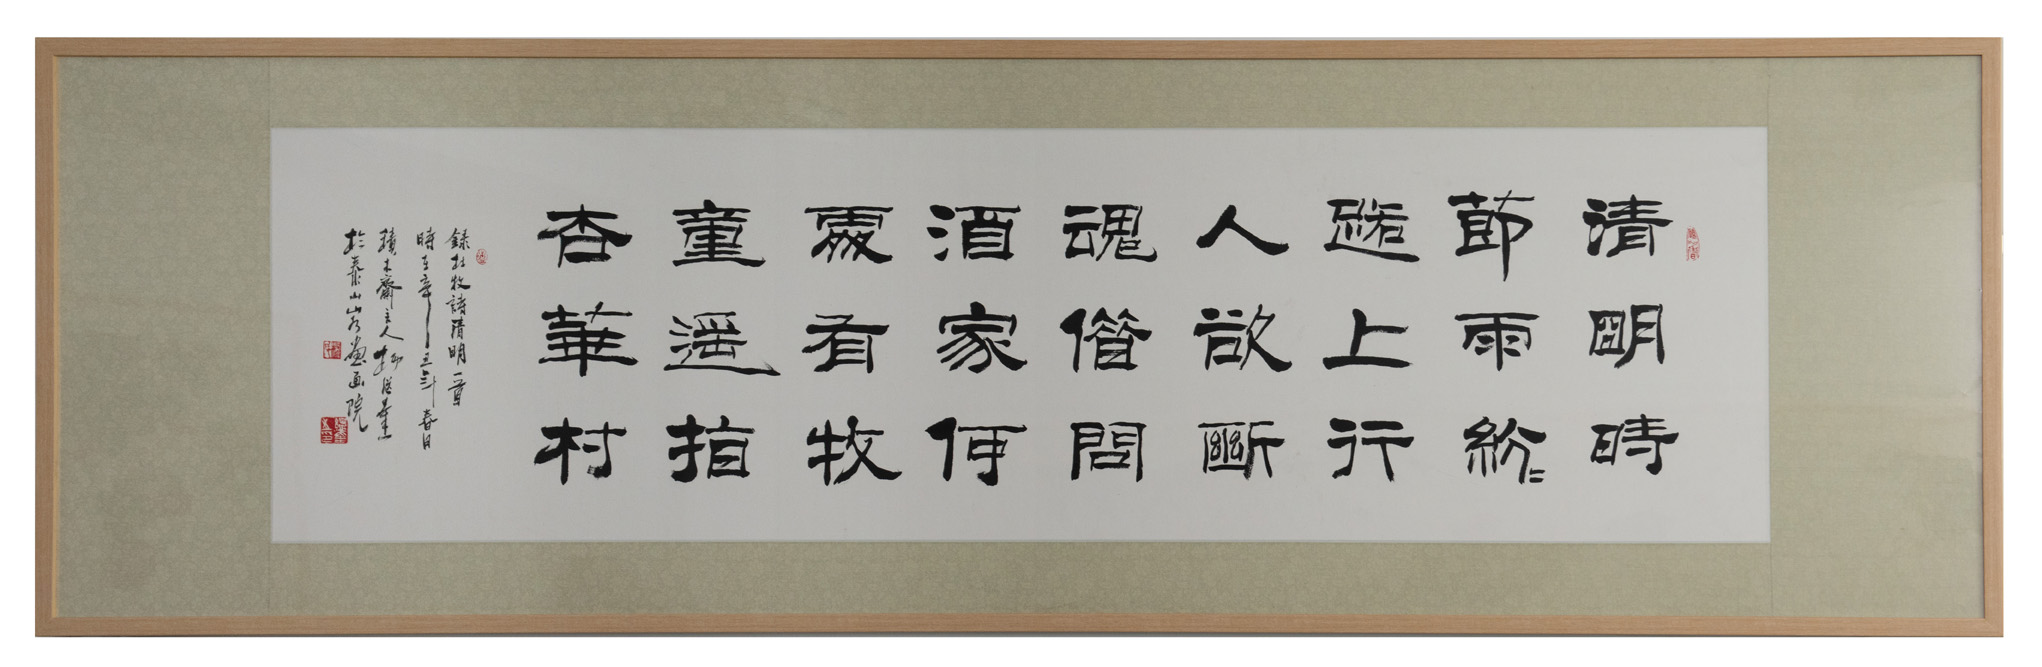 清明時
節雨紛〻
路上行
人欲斷
魂借問
酒家何
處有牧
童遥指
杏華村
錄杜牧詩清明一首
時在辛丑年春月
積木齋主人
於泰山書画院